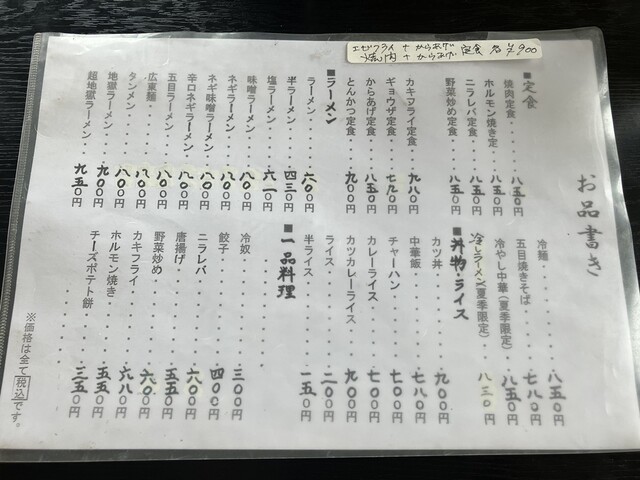 エビフライ + からあげ 定食 各¥900
焼肉 + からあげ
お品書き
■定食
焼肉定食・・・八五〇円
ホルモン焼き定・・八五〇円
ニラレバ定食・・・八五〇円
野菜炒め定食・・・八五〇円
カキフライ定食・・九八〇円
ギョウザ定食・・・七九〇円
からあげ定食・・・八五〇円
とんかつ定食・・・九〇〇円
■ラーメン
ラーメン・・・・六〇〇円
半ラーメン・・・四三〇円
塩ラーメン・・・六一〇円
味噌ラーメン・・・八〇〇円
ネギラーメン・・・八〇〇円
ネギ味噌ラーメン・・八〇〇円
辛口ネギラーメン・・八〇〇円
五目ラーメン・・・八〇〇円
広東麺・・・・・八〇〇円
タンメン・・・・八〇〇円
地獄ラーメン・・・九〇〇円
超地獄ラーメン・・九五〇円
冷麺・・・・・・八五〇円
五目焼きそば・・・七八〇円
冷やし中華(夏季限定)・・八五〇円
冷しラーメン(夏季限定)・・八三〇円
■丼物・ライス
カツ丼・・・・・九〇〇円
中華飯・・・・・七八〇円
チャーハン・・・・七〇〇円
カレーライス・・・七〇〇円
カツカレーライス・・九〇〇円
ライス・・・・・二〇〇円
半ライス・・・・一五〇円
■一品料理
冷奴・・・・・・三〇〇円
餃子・・・・・・四〇〇円
ニラレバ・・・・六〇〇円
唐揚げ・・・・・五五〇円
野菜炒め・・・・六〇〇円
カキフライ・・・六八〇円
ホルモン焼き・・・五五〇円
チーズポテト餅・・三五〇円
※価格は全て税込です。